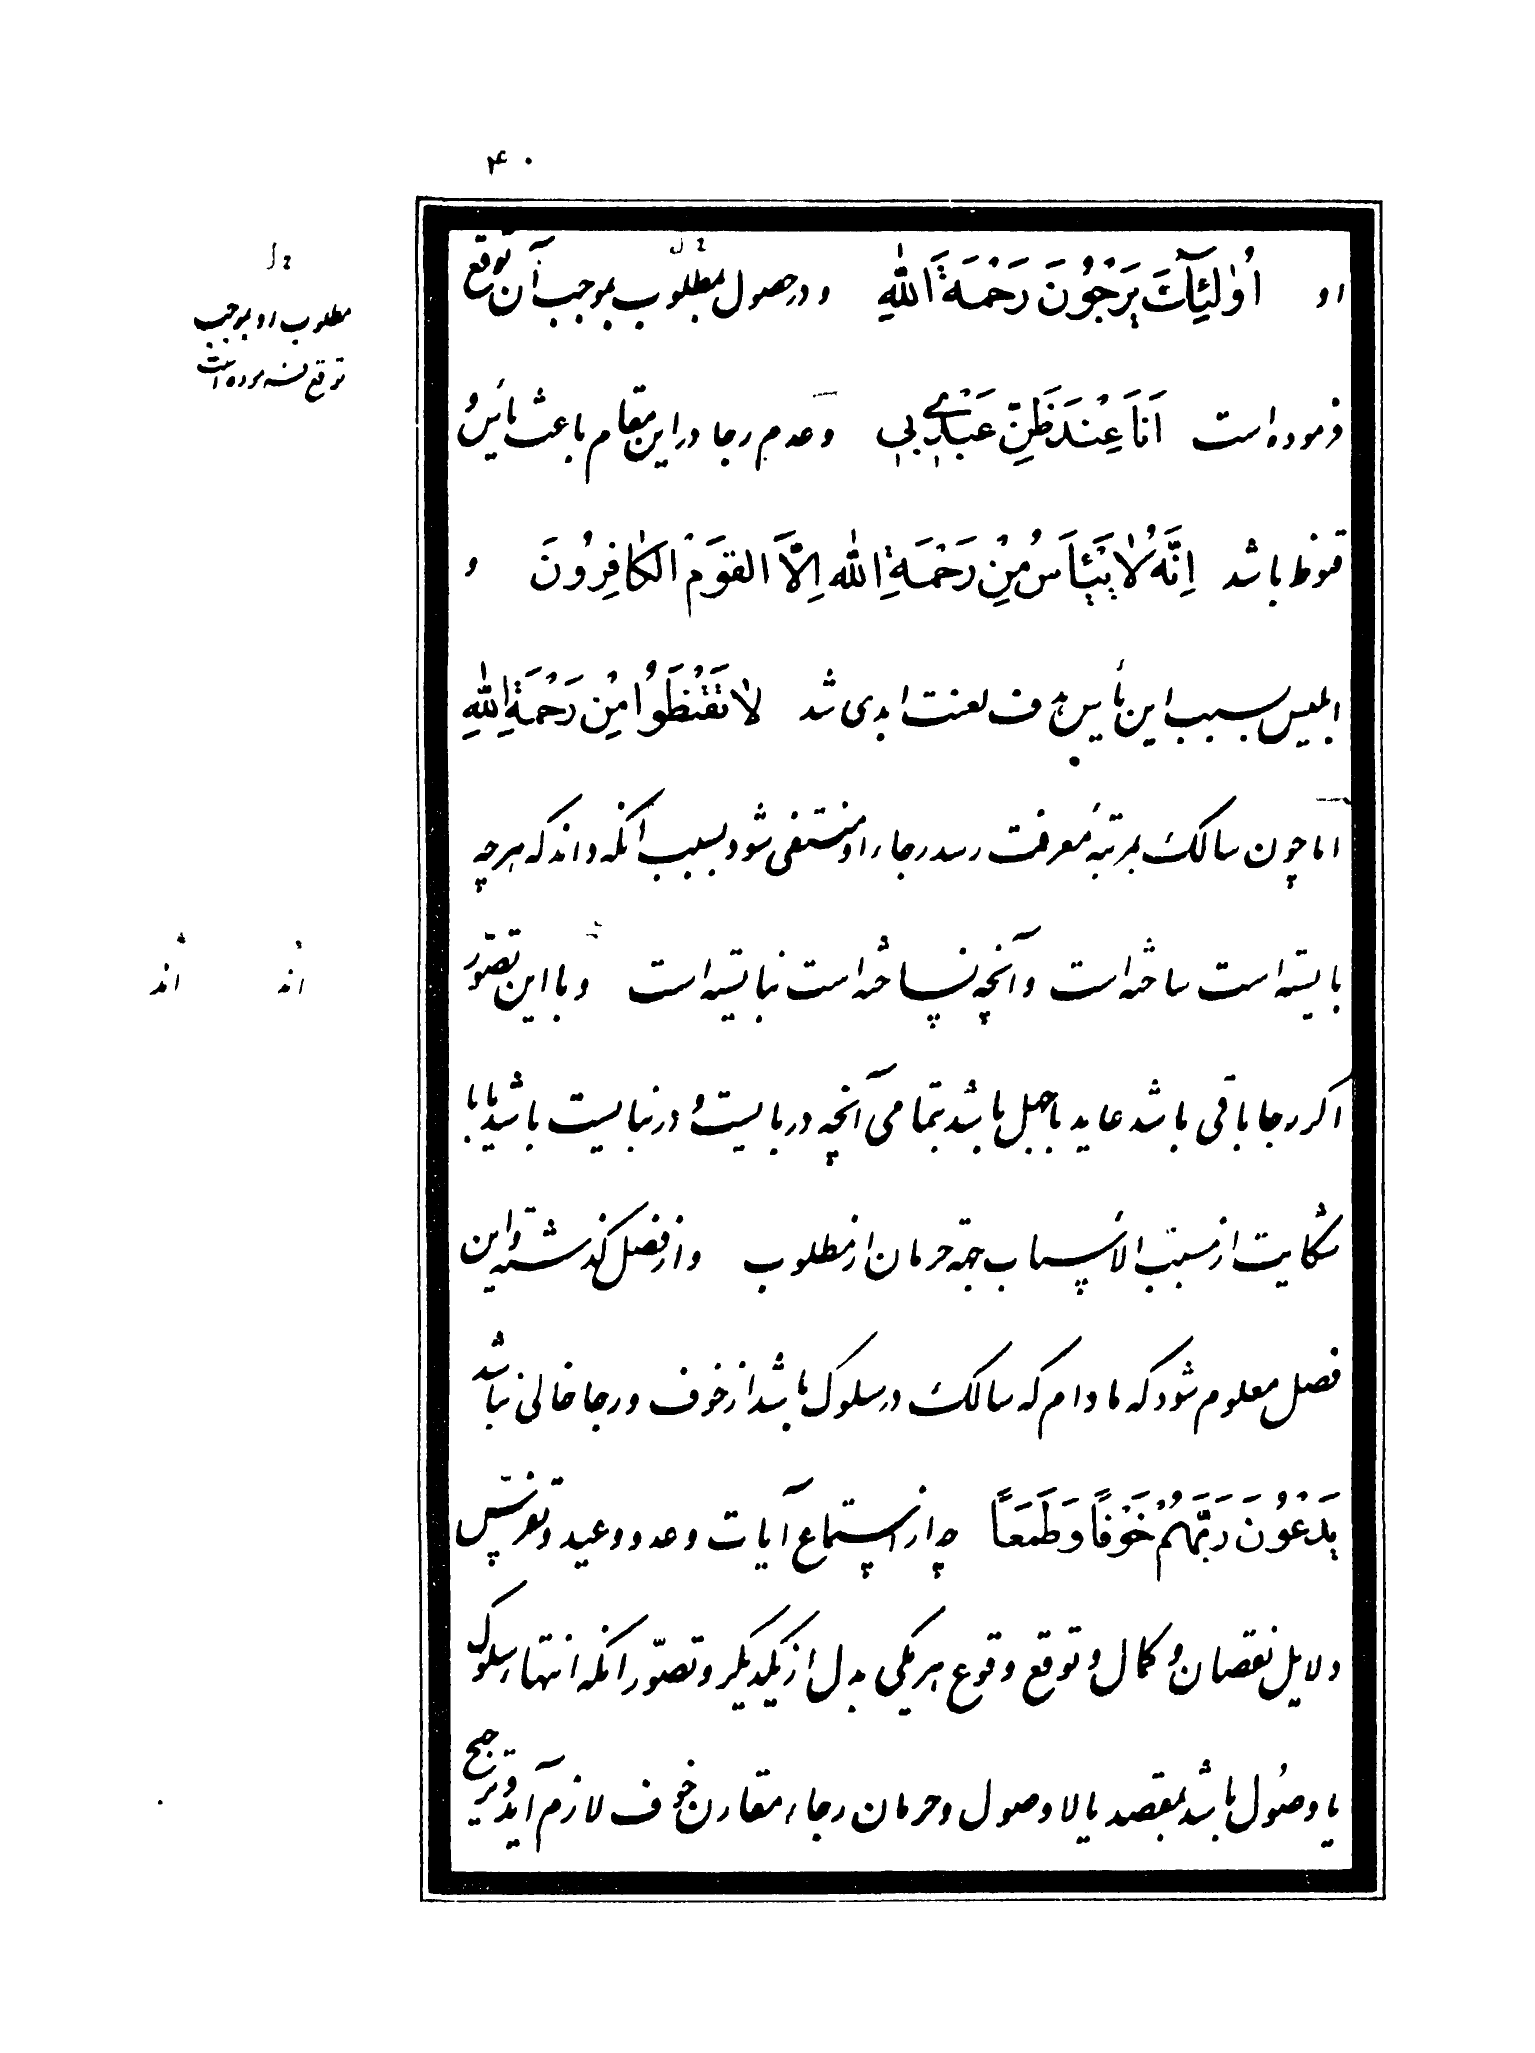 ۴۰
او اُولٰئِكَ يَرْجُونَ رَحْمَةَ اللّٰهِ و در حصول مطلوب بموجب آن توقع
خ ل
مطلوب او بموجب
توقع فرموده است
فرموده است اَنَا عِنْدَ ظَنِّ عَبْدِي بِي و عدم رجا در این مقام باعث یأس و
قنوط باشد اِنَّهُ لَا يَيْئَاَسُ مِنْ رَحْمَةِ اللّٰهِ اِلَّا القَوْمُ الكَافِرُونَ و
ابلیس بسبب این یأس هدف لعنت ابدی شد لَا تَقْنَطُوا مِنْ رَحْمَةِ اللّٰهِ
اما چون سالک بمرتبهٔ معرفت رسد رجاء او منتفی شود بسبب آنکه داند که هرچه
بایسته است ساخته است و آنچه نساخته است نبایسته است و با این تصوّر
اند اند
اگر رجا باقی باشد عاید با جهل باشد بتمامی آنچه در بایست و در نبایست باشد یا با
شکایت از مسبّب الاسباب جهة حرمان از مطلوب و از فصل گذشته و این
فصل معلوم شود که مادام که سالک در سلوک باشد از خوف و رجا خالی نباشد
يَدْعُونَ رَبَّهُمْ خَوْفًا وَطَمَعًا چه از استماع آیات وعد و وعید و تفرّس
دلایل نقصان و کمال و توقع وقوع هر یکی بدل از یکدیگر و تصوّر آنکه انتهاء سلوک
یا وصول باشد بمقصد یا لا وصول و حرمان رجاء مقارن خوف لازم آید و ترجیح